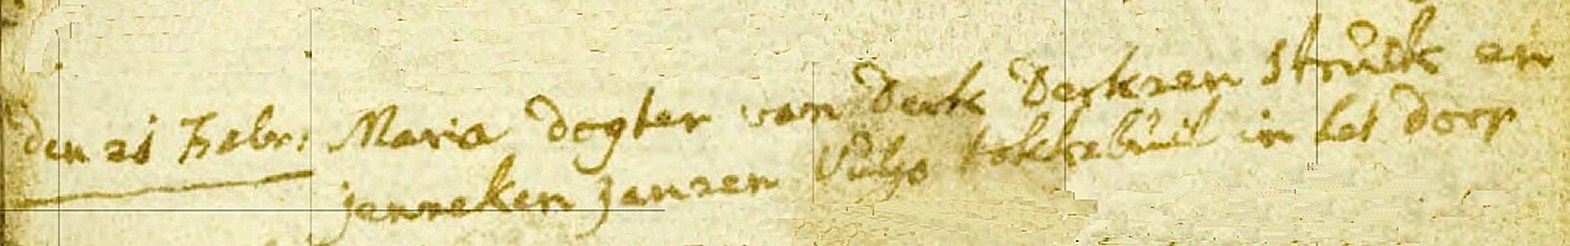 den 21 Febr: Maria dogter van Derk Derksen Struik en
janneken jansen Vulgo tokkebuil in het dorp